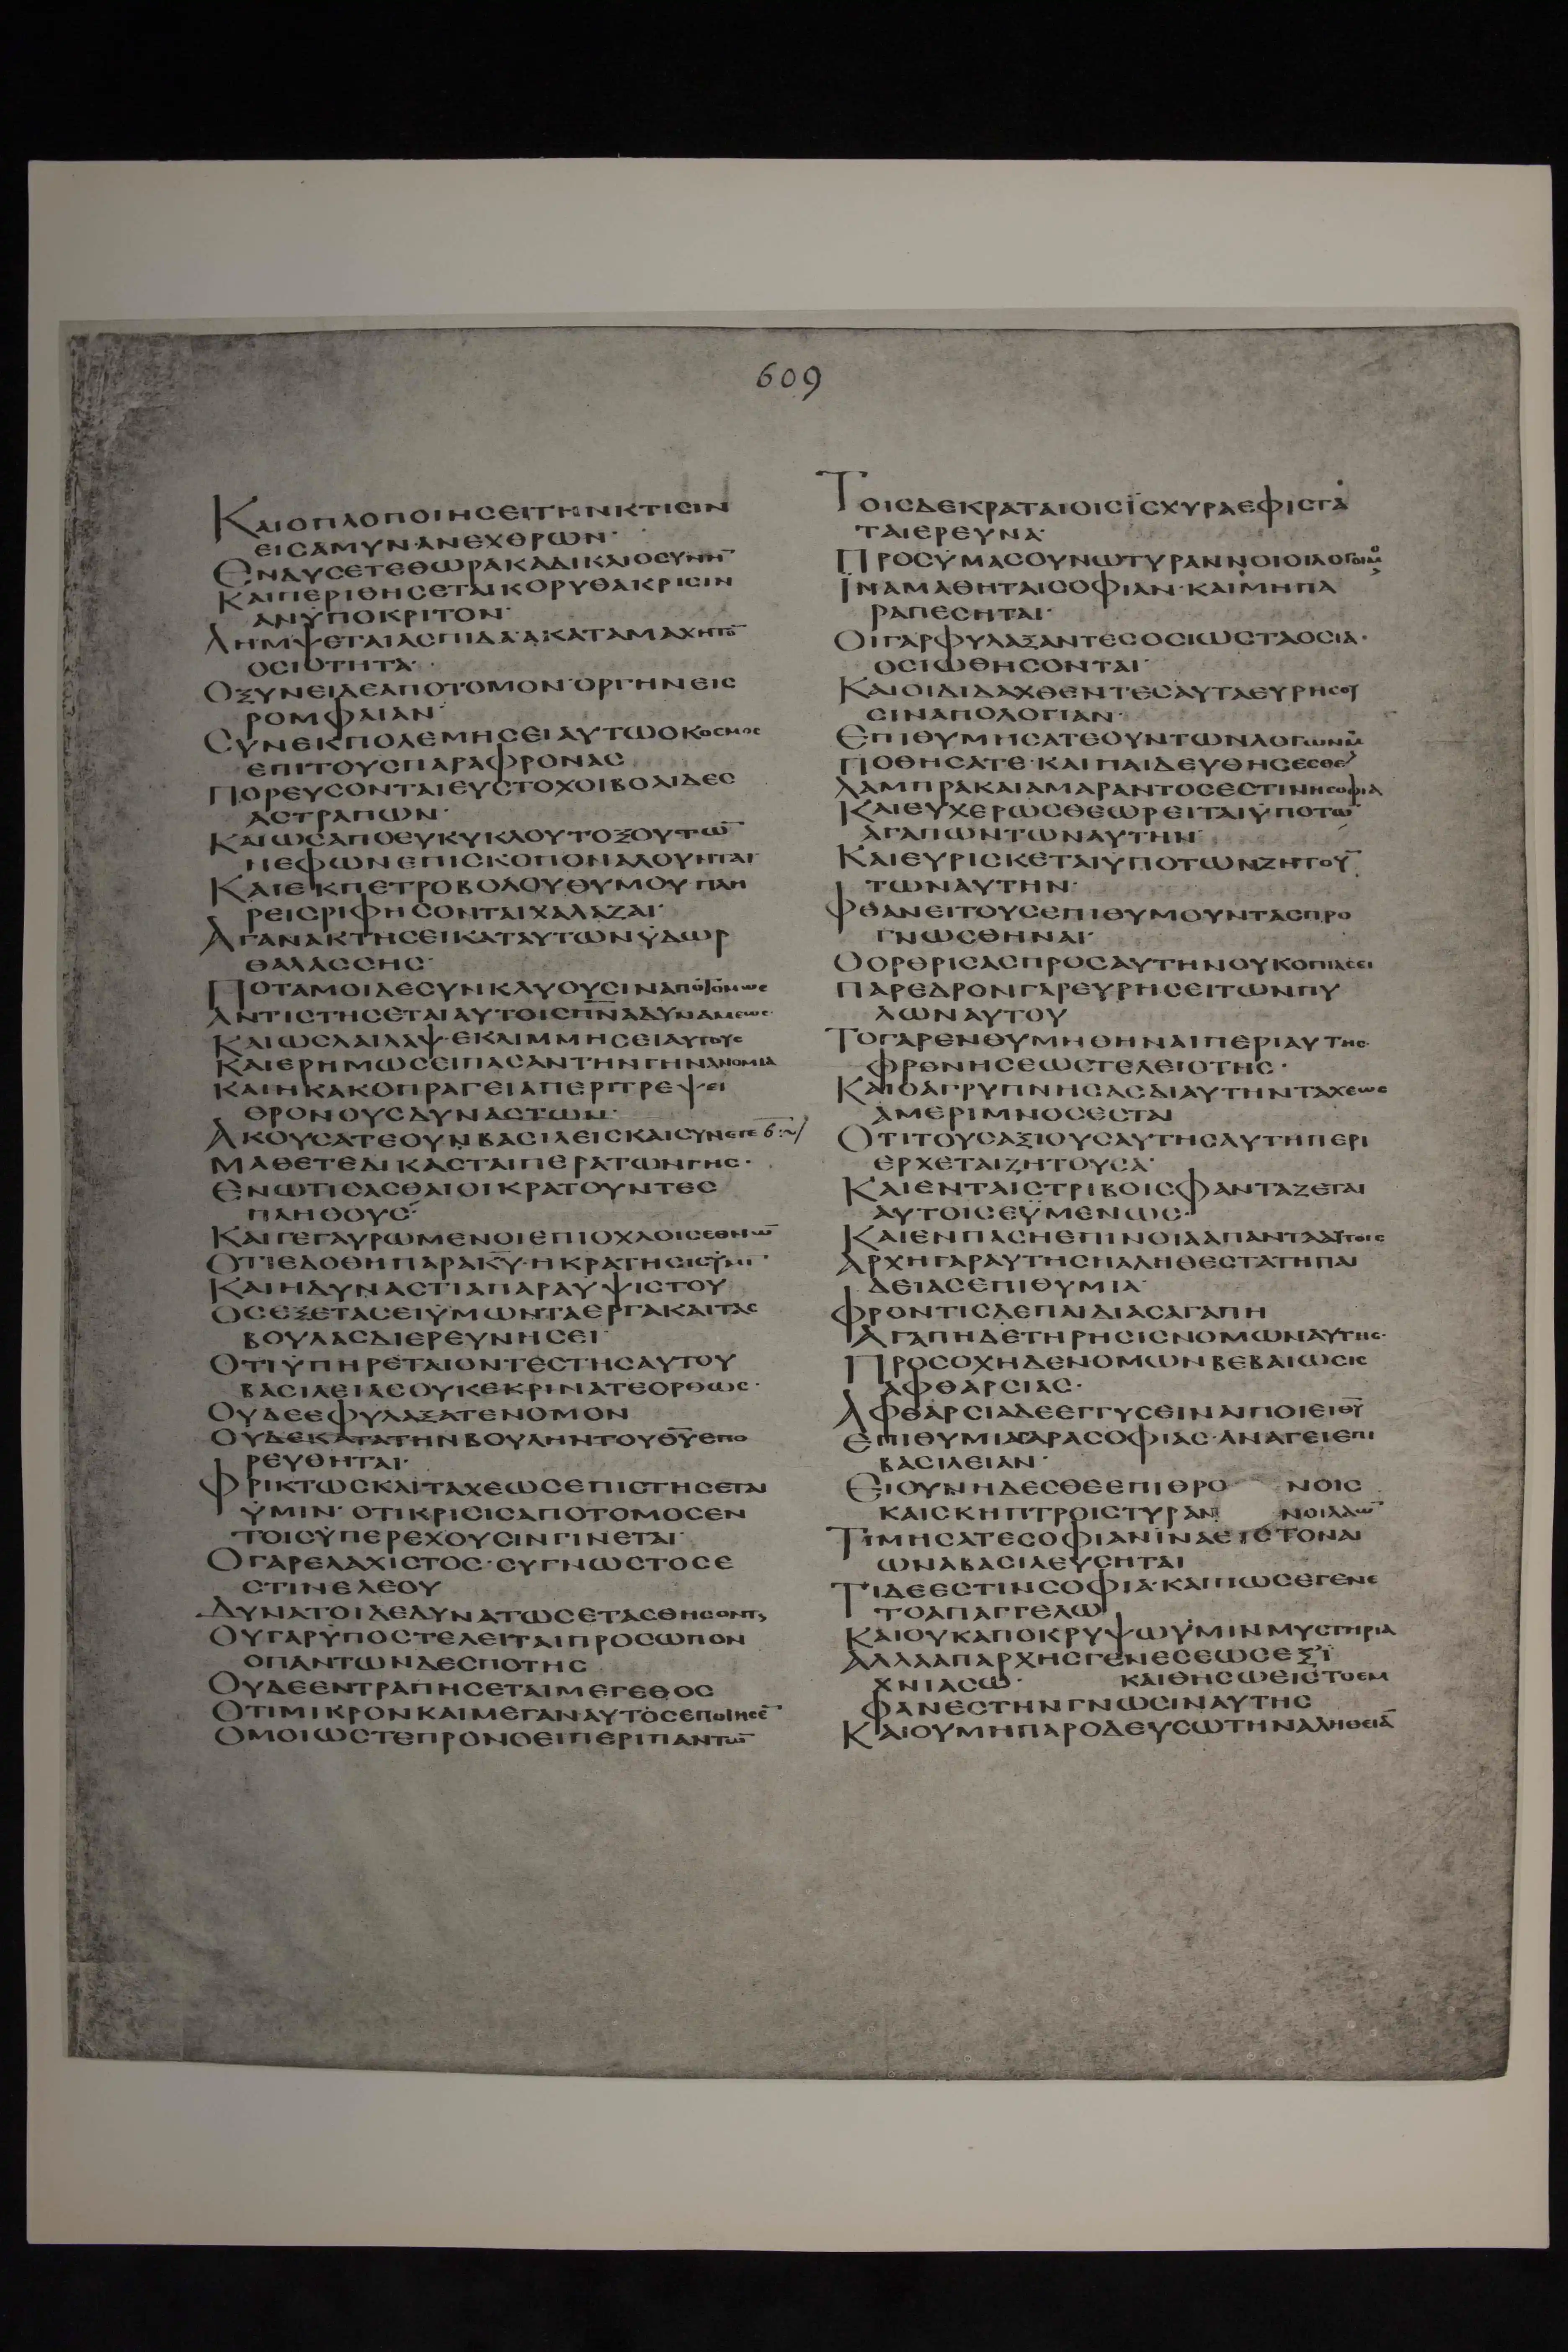 609
ΚΑΙΟΠΛΟΠΟΙΗCΕΙΤΗΝΚΤΙCΙΝ
ΕΙCΑΜΥΝΑΝΕΧΘΡΩΝ·
ΕΝΔΥCΕΤΕΘΩΡΑΚΑΔΙΚΑΙΟCΥΝΗ̅
ΚΑΙΠΕΡΙΘΗCΕΤΑΙΚΟΡΥΘΑΚΡΙCΙΝ
ΑΝΥΠΟΚΡΙΤΟΝ·
ΛΗΜΨΕΤΑΙΑCΠΙΔΑΑΚΑΤΑΜΑΧΗΤΟ̅
ΟCΙΟΤΗΤΑ·
ΟΞΥΝΕΙΔΕΑΠΟΤΟΜΟΝΟΡΓΗΝΕΙC
ΡΟΜΦΑΙΑΝ·
CΥΝΕΚΠΟΛΕΜΗCΕΙΑΥΤΩΟΚΟCΜΟC
ΕΠΙΤΟΥCΠΑΡΑΦΡΟΝΑC
ΠΟΡΕΥCΟΝΤΑΙΕΥCΤΟΧΟΙΒΟΛΙΔΕC
ΑCΤΡΑΠΩΝ·
ΚΑΙΩCΑΠΟΕΥΚΥΚΛΟΥΤΟΞΟΥΤΩ̅
ΝΕΦΩΝΕΠΙCΚΟΠΟΝΑΛΟΥΝΤΑΙ
ΚΑΙΕΚΠΕΤΡΟΒΟΛΟΥΘΥΜΟΥΠΛΗ
ΡΕΙCΡΙΦΗCΟΝΤΑΙΧΑΛΑΖΑΙ·
ΑΓΑΝΑΚΤΗCΕΙΚΑΤΑΥΤΩΝΫΔΩΡ
ΘΑΛΑCCΗC·
ΠΟΤΑΜΟΙΔΕCΥΝΚΛΥΟΥCΙΝΑΠΟΤΟΜΩC
ΑΝΤΙCΤΗCΕΤΑΙΑΥΤΟΙCΠ̅Ν̅ΑΔΥΝΑΜΕΩC·
ΚΑΙΩCΛΑΙΛΑΨ·ΕΚΛΙΜΜΗCΕΙΑΥΤΟΥC
ΚΑΙΕΡΗΜΩCΕΙΠΑCΑΝΤΗΝΓΗΝΑΝΟΜΙΑ
ΚΑΙΗΚΑΚΟΠΡΑΓΕΙΑΠΕΡΙΤΡΕΨΕΙ
ΘΡΟΝΟΥCΔΥΝΑCΤΩΝ·
ΑΚΟΥCΑΤΕΟΥΝΒΑCΙΛΕΙCΚΑΙCΥΝΕΤΕ 6:~/
ΜΑΘΕΤΕΔΙΚΑCΤΑΙΠΕΡΑΤΩΝΓΗC·
ΕΝΩΤΙCΑCΘΑΙΟΙΚΡΑΤΟΥΝΤΕC
ΠΛΗΘΟΥC·
ΚΑΙΓΕΓΑΥΡΩΜΕΝΟΙΕΠΙΟΧΛΟΙCΕΘΝΩ̅
ΟΤΙΕΔΟΘΗΠΑΡΑΚ̅Υ̅·ΗΚΡΑΤΗCΙCΫΜΙ̅·
ΚΑΙΗΔΥΝΑCΤΙΑΠΑΡΑΫΨΙCΤΟΥ
ΟCΕΞΕΤΑCΕΙΫΜΩΝΤΑΕΡΓΑΚΑΙΤΑC
ΒΟΥΛΑCΔΙΕΡΕΥΝΗCΕΙ·
ΟΤΙΫΠΗΡΕΤΑΙΟΝΤΕCΤΗCΑΥΤΟΥ
ΒΑCΙΛΕΙΑCΟΥΚΕΚΡΙΝΑΤΕΟΡΘΩC·
ΟΥΔΕΕΦΥΛΑΞΑΤΕΝΟΜΟΝ
ΟΥΔΕΚΑΤΑΤΗΝΒΟΥΛΗΝΤΟΥΘ̅Υ̅ΕΠΟ
ΡΕΥΘΗΤΑΙ·
ΦΡΙΚΤΩCΚΑΙΤΑΧΕΩCΕΠΙCΤΗCΕΤΑΙ
ΫΜΙΝ·ΟΤΙΚΡΙCΙCΑΠΟΤΟΜΟCΕΝ
ΤΟΙCΫΠΕΡΕΧΟΥCΙΝΓΙΝΕΤΑΙ·
ΟΓΑΡΕΛΑΧΙCΤΟC·CΥΓΝΩCΤΟCΕ
CΤΙΝΕΛΕΟΥ
ΔΥΝΑΤΟΙΔΕΔΥΝΑΤΩCΕΤΑCΘΗCΟΝΤ
ΟΥΓΑΡΫΠΟCΤΕΛΕΙΤΑΙΠΡΟCΩΠΟΝ
ΟΠΑΝΤΩΝΔΕCΠΟΤΗC
ΟΥΔΕΕΝΤΡΑΠΗCΕΤΑΙΜΕΓΕΘΟC
ΟΤΙΜΙΚΡΟΝΚΑΙΜΕΓΑΝΑΥΤΟCΕΠΟΙΗCΕ̅·
ΟΜΟΙΩCΤΕΠΡΟΝΟΕΙΠΕΡΙΠΑΝΤΩ̅
ΤΟΙCΔΕΚΡΑΤΑΙΟΙCΪCΧΥΡΑΕΦΙCΤΑ
ΤΑΙΕΡΕΥΝΑ·
ΠΡΟCΫΜΑCΟΥΝΩΤΥΡΑΝΝΟΙΟΙΛΟΓΟΙΜΟΥ
ΪΝΑΜΑΘΗΤΑΙCΟΦΙΑΝ·ΚΑΙΜΗΠΑ
ΡΑΠΕCΗΤΑΙ·
ΟΙΓΑΡΦΥΛΑΞΑΝΤΕCΟCΙΩCΤΑΟCΙΑ·
ΟCΙΩΘΗCΟΝΤΑΙ·
ΚΑΙΟΙΔΙΔΑΧΘΕΝΤΕCΑΥΤΑΕΥΡΗCΟΥ
CΙΝΑΠΟΛΟΓΙΑΝ·
ΕΠΙΘΥΜΗCΑΤΕΟΥΝΤΩΝΛΟΓΩΝΜΥ
ΠΟΘΗCΑΤΕ·ΚΑΙΠΑΙΔΕΥΘΗCΕCΘΕ
ΛΑΜΠΡΑΚΑΙΑΜΑΡΑΝΤΟCΕCΤΙΝΗCΟΦΙΑ
ΚΑΙΕΥΧΕΡΩCΘΕΩΡΕΙΤΑΙΫΠΟΤΩ̅
ΑΓΑΠΩΝΤΩΝΑΥΤΗΝ·
ΚΑΙΕΥΡΙCΚΕΤΑΙΫΠΟΤΩΝΖΗΤΟΥ̅
ΤΩΝΑΥΤΗΝ·
ΦΘΑΝΕΙΤΟΥCΕΠΙΘΥΜΟΥΝΤΑCΠΡΟ
ΓΝΩCΘΗΝΑΙ·
ΟΟΡΘΡΙCΑCΠΡΟCΑΥΤΗΝΟΥΚΟΠΙΑCΕΙ
ΠΑΡΕΔΡΟΝΓΑΡΕΥΡΗCΕΙΤΩΝΠΥ
ΛΩΝΑΥΤΟΥ
ΤΟΓΑΡΕΝΘΥΜΗΘΗΝΑΙΠΕΡΙΑΥΤΗC·
ΦΡΟΝΗCΕΩCΤΕΛΕΙΟΤΗC·
ΚΑΙΟΑΓΡΥΠΝΗCΑCΔΙΑΥΤΗΝΤΑΧΕΩC
ΑΜΕΡΙΜΝΟCΕCΤΑΙ
ΟΤΙΤΟΥCΑΞΙΟΥCΑΥΤΗCΑΥΤΗΠΕΡΙ
ΕΡΧΕΤΑΙΖΗΤΟΥCΑ·
ΚΑΙΕΝΤΑΙCΤΡΙΒΟΙCΦΑΝΤΑΖΕΤΑΙ
ΑΥΤΟΙCΕΫΜΕΝΩC·
ΚΑΙΕΝΠΑCΗΕΠΙΝΟΙΑΑΠΑΝΤΑΑΥΤΟΙC
ΑΡΧΗΓΑΡΑΥΤΗCΗΑΛΗΘΕCΤΑΤΗΠΑΙ
ΔΕΙΑCΕΠΙΘΥΜΙΑ·
ΦΡΟΝΤΙCΔΕΠΑΙΔΙΑCΑΓΑΠΗ
ΑΓΑΠΗΔΕΤΗΡΗCΙCΝΟΜΩΝΑΥΤΗC·
ΠΡΟCΟΧΗΔΕΝΟΜΩΝΒΕΒΑΙΩCΙC
ΑΦΘΑΡCΙΑC·
ΑΦΘΑΡCΙΑΔΕΕΓΓΥCΕΙΝΑΙΠΟΙΕΙΘ̅Υ̅
ΕΠΙΘΥΜΙΑΓΑΡΑCΟΦΙΑC·ΑΝΑΓΕΙΕΠΙ
ΒΑCΙΛΕΙΑΝ·
ΕΙΟΥΝΗΔΕCΘΕΕΠΙΘΡΟ ΝΟΙC
ΚΑΙCΚΗΠΤΡΟΙCΤΥΡΑΝ ΝΟΙΛΑΩ̅
ΤΙΜΗCΑΤΕCΟΦΙΑΝΪΝΑΕΙCΤΟΝΑΙ
ΩΝΑΒΑCΙΛΕΥCΗΤΑΙ
ΤΙΔΕΕCΤΙΝCΟΦΙΑ·ΚΑΙΠΩCΕΓΕΝΕ
ΤΟΑΠΑΓΓΕΛΩ
ΚΑΙΟΥΚΑΠΟΚΡΥΨΩΫΜΙΝΜΥCΤΗΡΙΑ
ΑΛΛΑΑΠΑΡΧΗCΓΕΝΕCΕΩCΕΞΪ
ΧΝΙΑCΩ· ΚΑΙΘΗCΩΕΙCΤΟΕΜ
ΦΑΝΕCΤΗΝΓΝΩCΙΝΑΥΤΗC
ΚΑΙΟΥΜΗΠΑΡΟΔΕΥCΩΤΗΝΑΛΗΘΕΙΑ̅